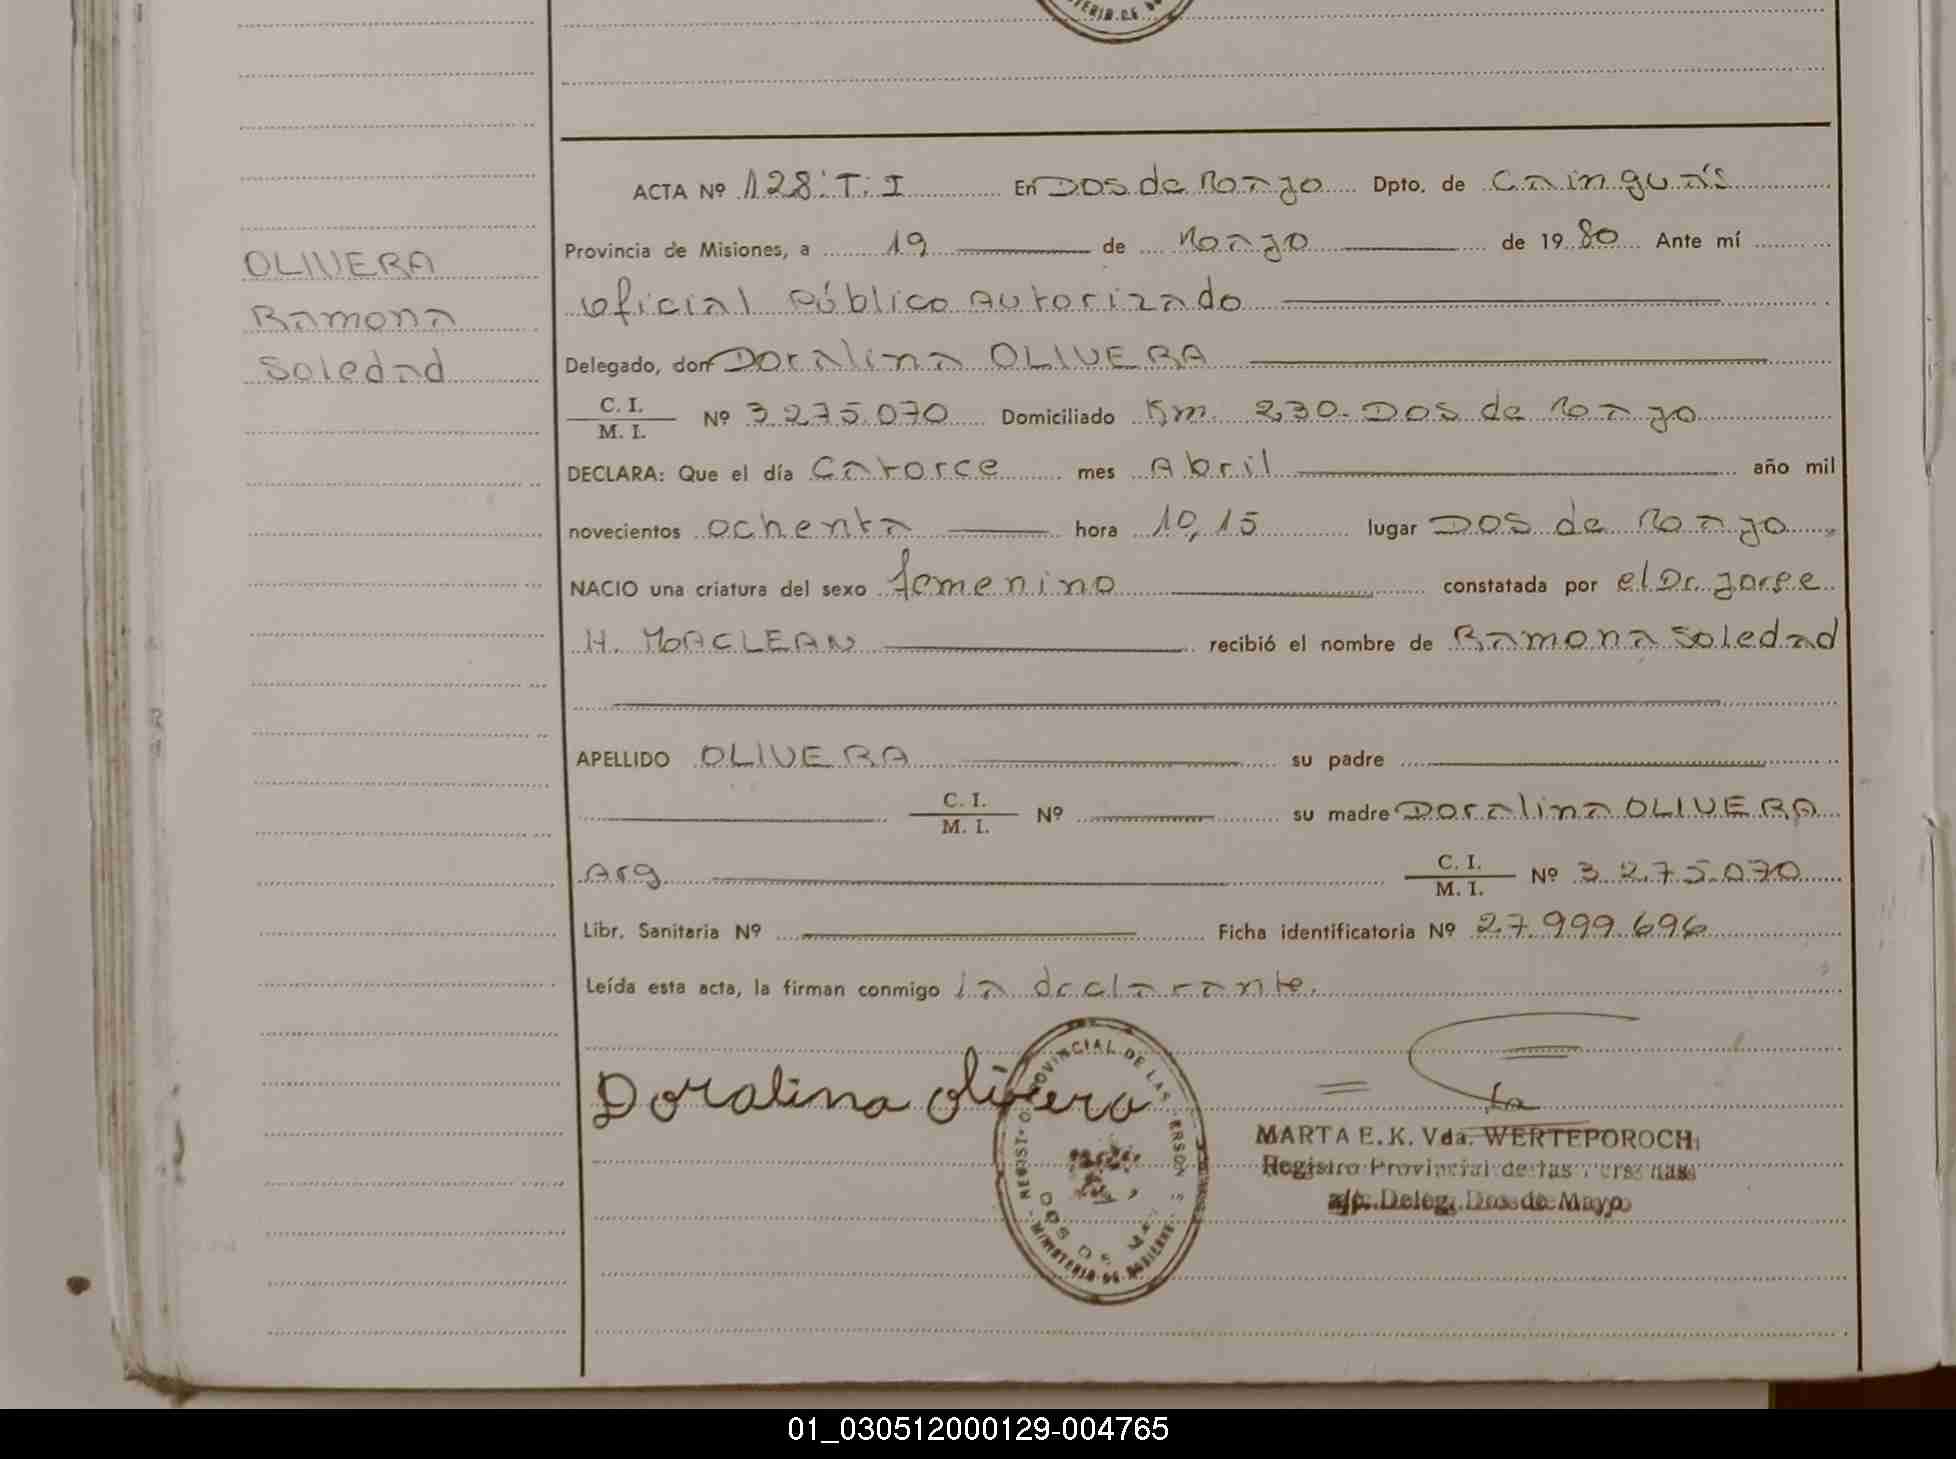 MINISTERIO DE GO
ACTA Nº 128: T. I En Dos de Mayo Dpto. de Cainguás
Provincia de Misiones, a 19 de Mayo de 1980 Ante mí
Oficial Público Autorizado
OLIVERA
Ramona
Soledad
Delegado, don Doralina OLIVERA
C. I.
M. I. Nº 3.275.070 Domiciliado Km. 230. Dos de Mayo
DECLARA: Que el día Catorce mes Abril año mil
novecientos ochenta hora 10,15 lugar Dos de Mayo
NACIO una criatura del sexo femenino constatada por el Dr. Jorge
H. MACLEAN recibió el nombre de Ramona Soledad
APELLIDO OLIVERA su padre
C. I.
M. I. Nº su madre Doralina OLIVERA
Arg C. I.
M. I. Nº 3.275.070
Libr. Sanitaria Nº Ficha identificatoria Nº 27.999.696
Leída esta acta, la firman conmigo la declarante.
Doralina Olivera
REGISTRO PROVINCIAL DE LAS PERSONAS
DOS DE MAYO
MINISTERIO DE GOBIERNO
MARTA E. K. Vda. WERTEPOROCH
Registro Provincial de las Personas
a/c. Deleg. Dos de Mayo
01_030512000129-004765